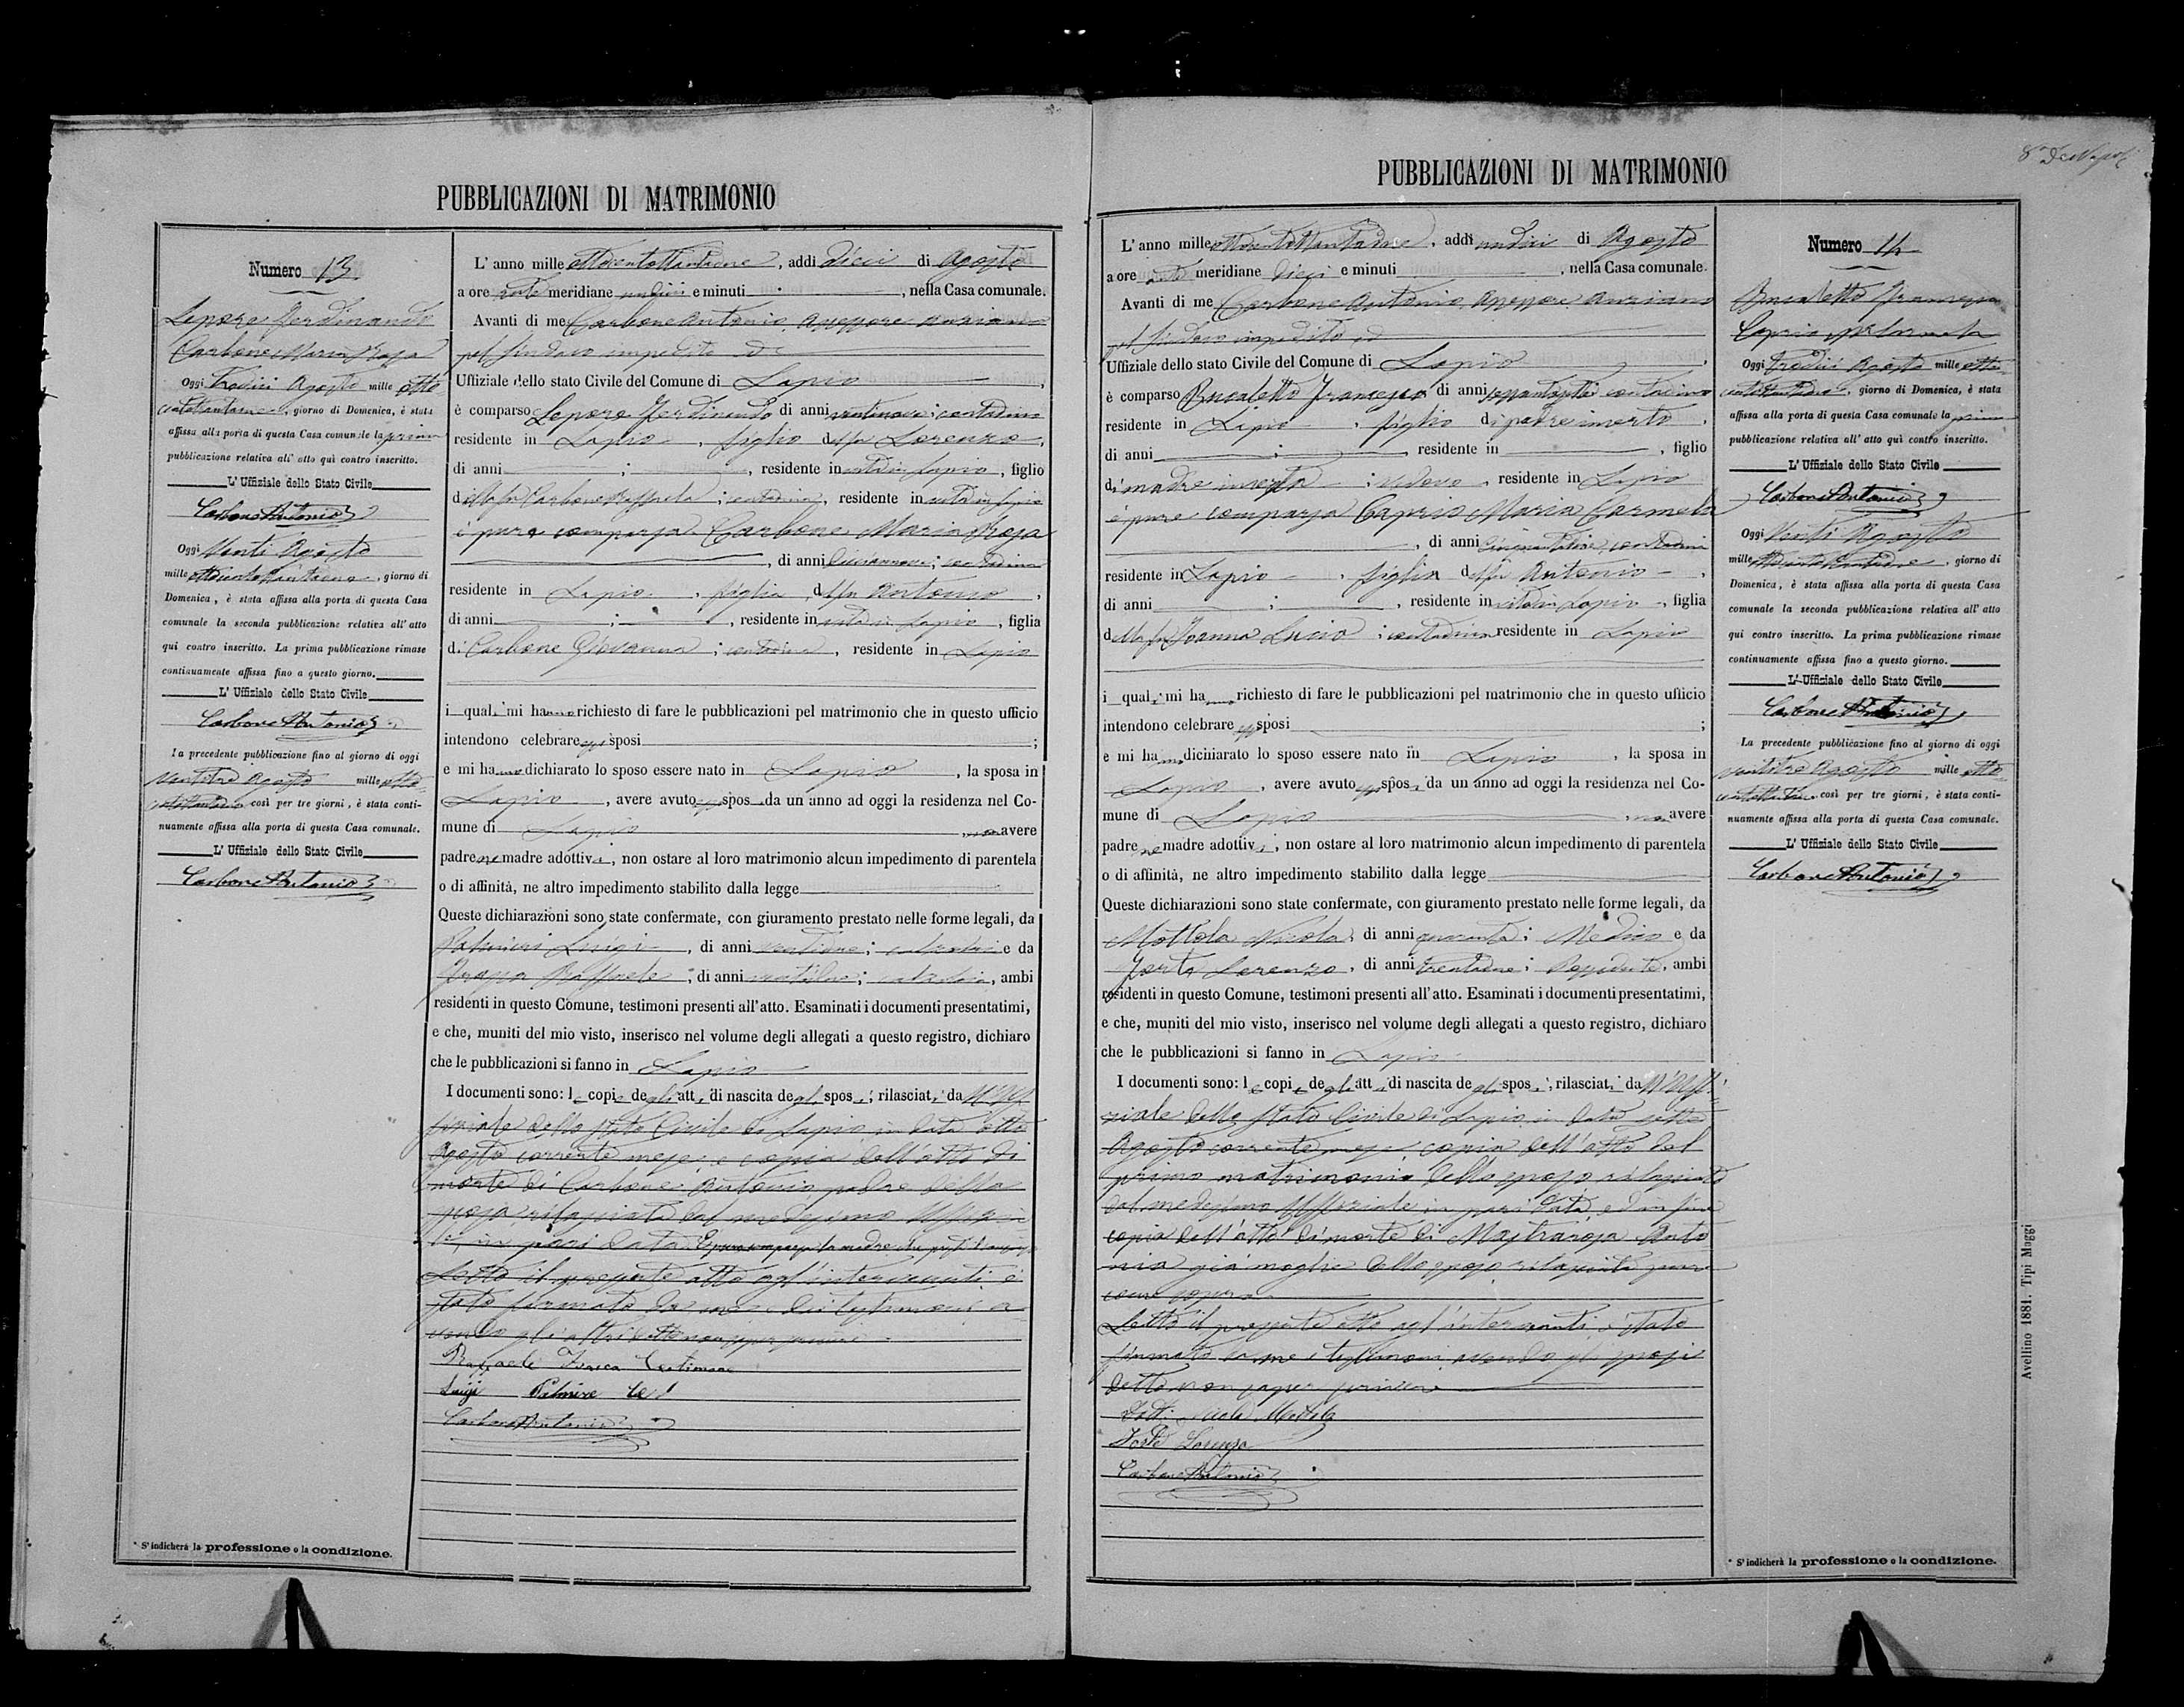 8ª De Napoli
PUBBLICAZIONI DI MATRIMONIO
Numero 13
Lepore Ferdinando
Carbone Maria Rosa
Oggi tredici Agosto mille otto
centottantadue, giorno di Domenica, è stata
affissa alla porta di questa Casa comunale la prima
pubblicazione relativa all' atto quì contro inscritto.
L' Uffiziale dello Stato Civile
Carbone Antonio
Oggi Venti Agosto
mille ottocentottantadue, giorno di
Domenica, è stata affissa alla porta di questa Casa
comunale la seconda pubblicazione relativa all' atto
qui contro inscritto. La prima pubblicazione rimase
continuamente affissa fino a questo giorno.
L' Uffiziale dello Stato Civile
Carbone Antonio
La precedente pubblicazione fino al giorno di oggi
ventitre Agosto mille otto
centottantadue così per tre giorni, è stata conti-
nuamente affissa alla porta di questa Casa comunale.
L' Uffiziale dello Stato Civile
Carbone Antonio
* S' indicherà la professione o la condizione.
L' anno mille ottocentottantadue, addì dieci di Agosto
a ore ante meridiane undici e minuti , nella Casa comunale.
Avanti di me Carbone Antonio Assessore anziano
pel Sindaco impedito ed
Uffiziale dello stato Civile del Comune di Lapio,
è comparso Lepore Ferdinando di anni ventinove; contadino
residente in Lapio, figlio del fu Lorenzo,
di anni ; , residente in vita in Lapio, figlio
della fu Carbone Raffaela; contadina, residente in vita in Lapio
è pure comparsa Carbone Maria Rosa
, di anni diciannove; contadina
residente in Lapio, figlia del fu Antonio,
di anni ; , residente in vita in Lapio, figlia
di Carbone Giovanna; contadina, residente in Lapio
i quali mi hanno richiesto di fare le pubblicazioni pel matrimonio che in questo ufficio
intendono celebrare essi sposi ;
e mi hanno dichiarato lo sposo essere nato in Lapio, la sposa in
Lapio, avere avuto essi sposi da un anno ad oggi la residenza nel Co-
mune di Lapio, non avere
padre ne madre adottivi, non ostare al loro matrimonio alcun impedimento di parentela
o di affinità, ne altro impedimento stabilito dalla legge
Queste dichiarazioni sono state confermate, con giuramento prestato nelle forme legali, da
Luigi, di anni ; e da
Raffaele; di anni ; , ambi
residenti in questo Comune, testimoni presenti all'atto. Esaminati i documenti presentatimi,
e che, muniti del mio visto, inserisco nel volume degli allegati a questo registro, dichiaro
che le pubblicazioni si fanno in Lapio
I documenti sono: le copie degli atti di nascita degli sposi; rilasciati da ll'Uf-
fiziale dello Stato Civile di Lapio in data otto
Agosto corrente mese; e copia dell'atto di
morte di Carbone Antonio padre della
sposa rilasciata dal medesimo Uffizia
le, in pari data. È pure comparsa la madre
Letto il presente atto agl'intervenuti è
stato firmato da me e dai testimoni a-
vendo gli altri detto non saper scrivere
Raffaele testimone
Luigi
Carbone Antonio
PUBBLICAZIONI DI MATRIMONIO
L' anno mille ottocentottantadue, addì undici di Agosto
a ore ante meridiane dieci e minuti , nella Casa comunale.
Avanti di me Carbone Antonio Assessore Anziano
pel Sindaco impedito ed
Uffiziale dello stato Civile del Comune di Lapio,
è comparso Francesco di anni ; contadino
residente in Lapio, figlio di padre incerto,
di anni ; , residente in , figlio
di madre incerta; vedovo, residente in Lapio
è pure comparsa Caprio Maria Carmela
, di anni contadina
residente in Lapio, figlia del fu Antonio,
di anni ; , residente in vita in Lapio, figlia
della fu Joanna Lucia; contadina residente in Lapio
i quali mi hanno richiesto di fare le pubblicazioni pel matrimonio che in questo ufficio
intendono celebrare essi sposi ;
e mi hanno dichiarato lo sposo essere nato in Lapio, la sposa in
Lapio, avere avuto essi sposi da un anno ad oggi la residenza nel Co-
mune di Lapio, non avere
padre ne madre adottivi, non ostare al loro matrimonio alcun impedimento di parentela
o di affinità, ne altro impedimento stabilito dalla legge
Queste dichiarazioni sono state confermate, con giuramento prestato nelle forme legali, da
Mottola Nicola, di anni quaranta; Medico e da
Forte Lorenzo, di anni trentadue; Possidente, ambi
residenti in questo Comune, testimoni presenti all'atto. Esaminati i documenti presentatimi,
e che, muniti del mio visto, inserisco nel volume degli allegati a questo registro, dichiaro
che le pubblicazioni si fanno in Lapio
I documenti sono: le copie degli atti di nascita degli sposi, rilasciati da ll'Uffi-
ziale dello Stato Civile di Lapio in data sette
Agosto corrente mese; copia dell'atto del
primo matrimonio dello sposo rilasciato
dal medesimo Uffiziale in pari data, ed infine
copia dell'atto di morte di Mastrarosa Anto
nia già moglie dello sposo rilasciata pure
come sopra.
Letto il presente atto agl'intervenuti è stato
firmato da me e testimoni avendo gli sposi
detto non saper scrivere
Dott. Nicola Mottola
Forte Lorenzo
Carbone Antonio
Numero 14
Francesco
Caprio Ma Carmela
Oggi tredici Agosto mille otto-
centottantadue, giorno di Domenica, è stata
affissa alla porta di questa Casa comunale la prima
pubblicazione relativa all' atto quì contro inscritto.
L' Uffiziale dello Stato Civile
Carbone Antonio
Oggi Venti Agosto
mille ottocentottantadue, giorno di
Domenica, è stata affissa alla porta di questa Casa
comunale la seconda pubblicazione relativa all' atto
qui contro inscritto. La prima pubblicazione rimase
continuamente affissa fino a questo giorno.
L' Uffiziale dello Stato Civile
Carbone Antonio
La precedente pubblicazione fino al giorno di oggi
ventitre Agosto mille otto-
centottantadue così per tre giorni, è stata conti-
nuamente affissa alla porta di questa Casa comunale.
L' Uffiziale dello Stato Civile
Carbone Antonio
* S' indicherà la professione o la condizione.
Avellino 1881. Tipi Maggi